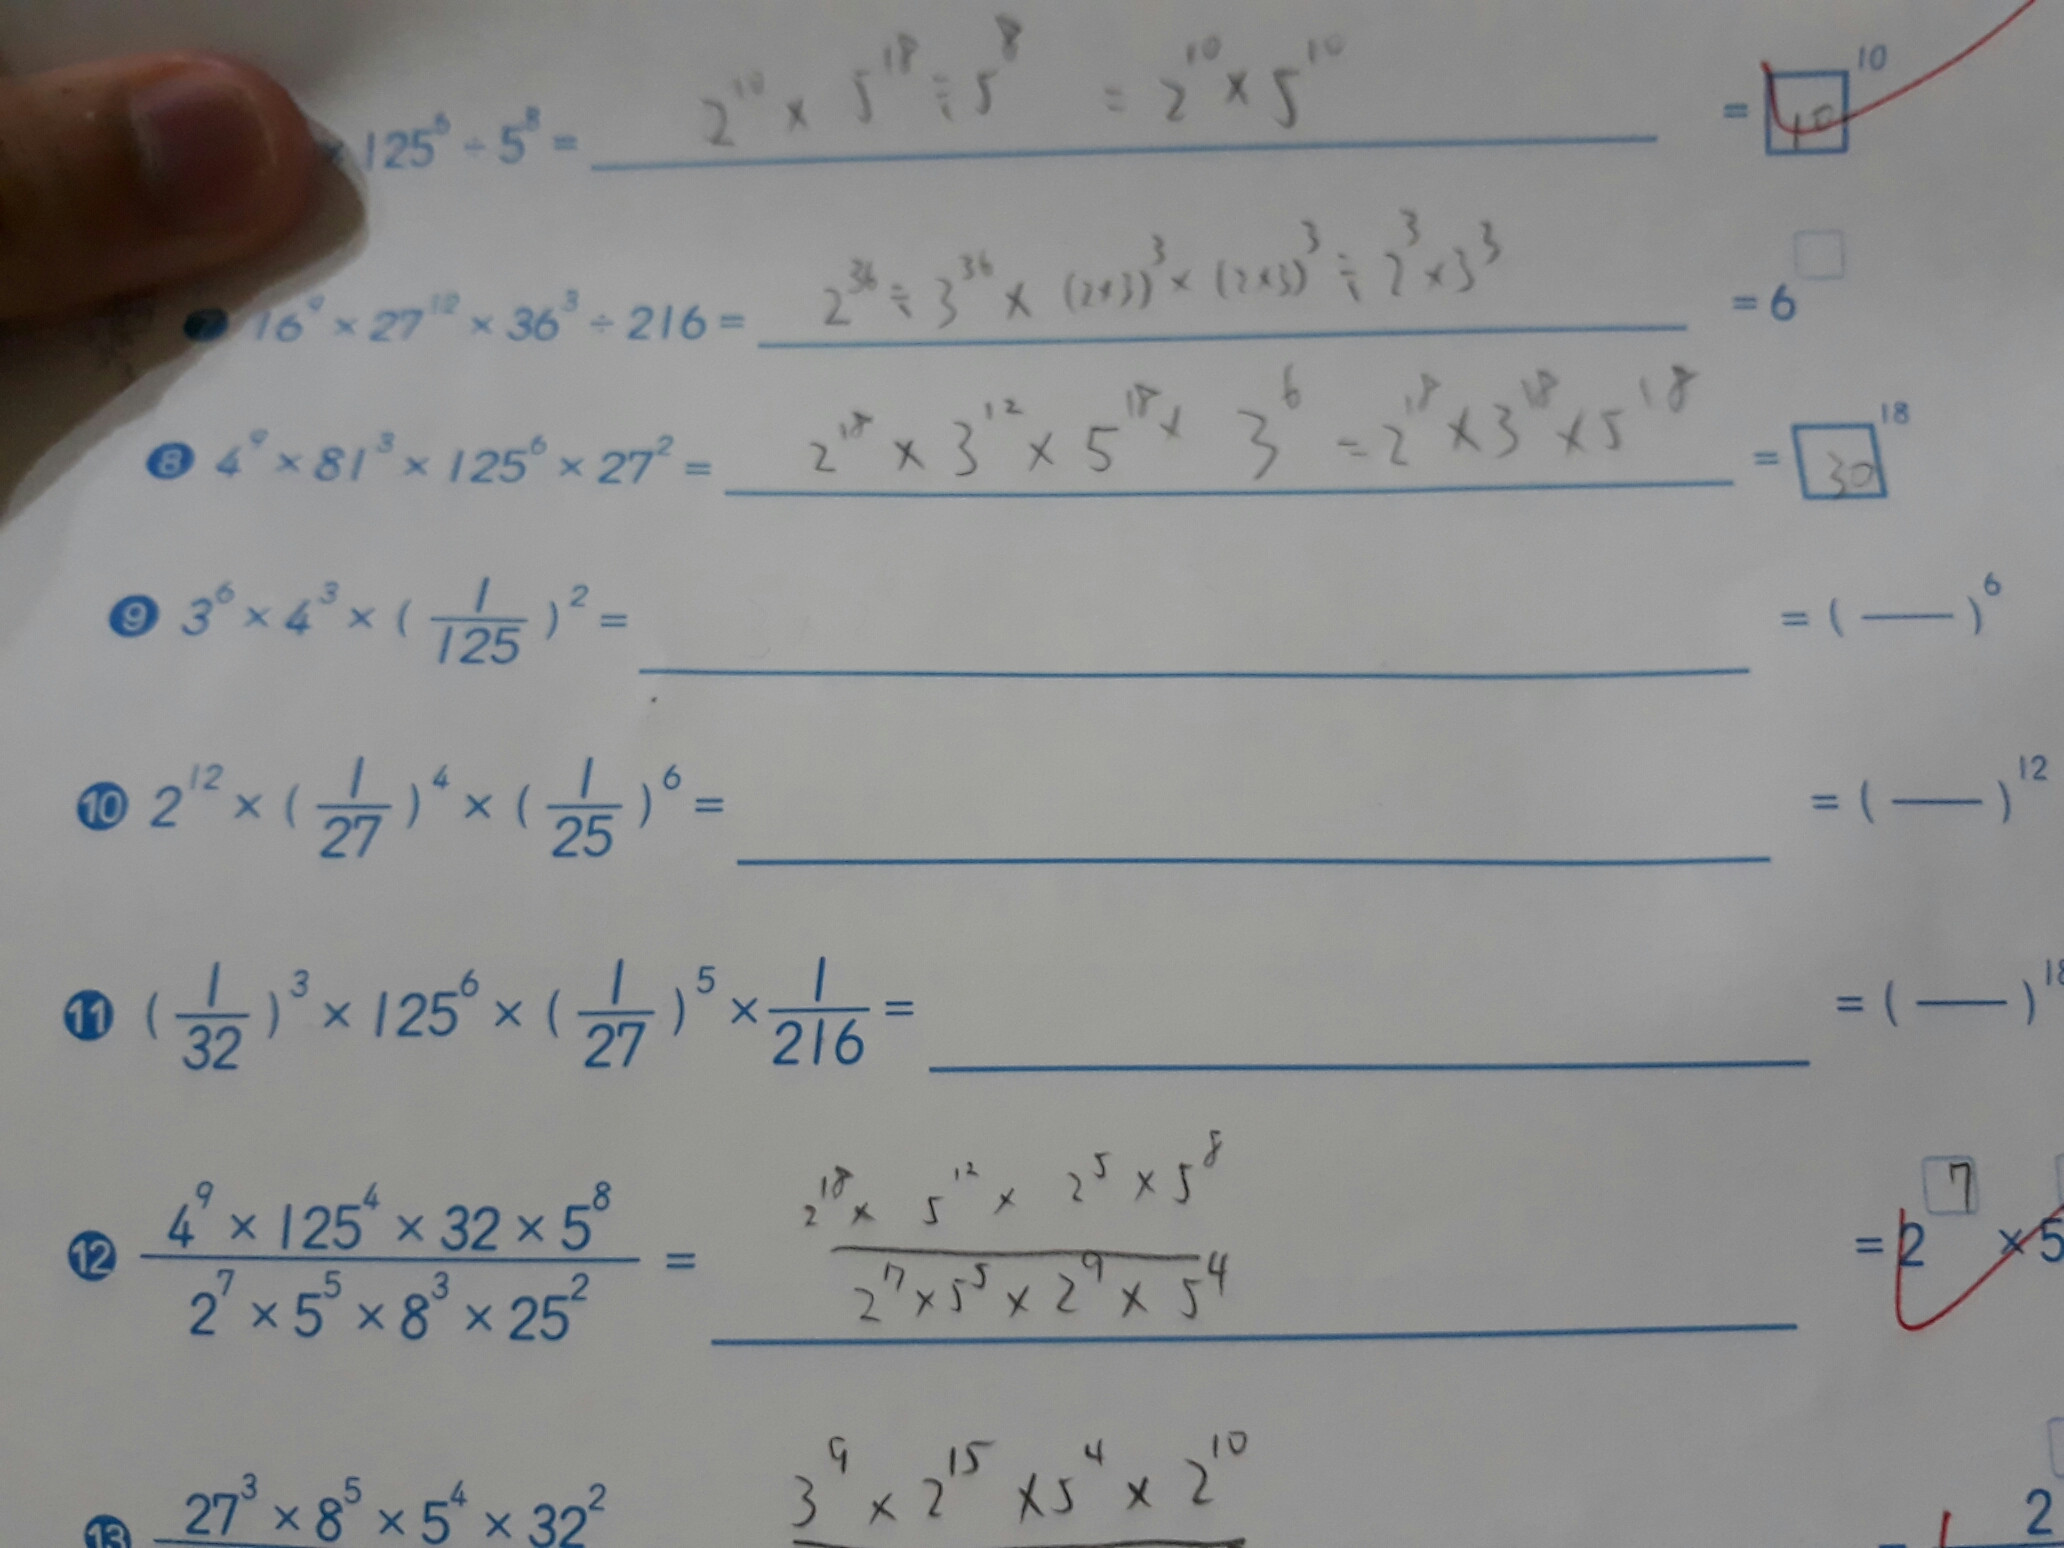 125⁶ ÷ 5⁸ = 2¹⁰ × 5¹⁸ ÷ 5⁸ = 2¹⁰ × 5¹⁰ = 10¹⁰
7 16⁹ × 27¹² × 36³ ÷ 216 = 2³⁶ ÷ 3³⁶ × (2×3)³ × (2×3)³ ÷ 2³ × 3³ = 6
8 4⁹ × 81³ × 125⁶ × 27² = 2¹⁸ × 3¹² × 5¹⁸ × 3⁶ = 2¹⁸ × 3¹⁸ × 5¹⁸ = 30¹⁸
9 3⁶ × 4³ × (1/125)² = = ( — )⁶
10 2¹² × (1/27)⁴ × (1/25)⁶ = = ( — )¹²
11 (1/32)³ × 125⁶ × (1/27)⁵ × 1/216 = = ( — )¹⁸
2¹⁸ × 5¹² × 2⁵ × 5⁸
12 4⁹ × 125⁴ × 32 × 5⁸ = 2⁷ × 5
2⁷ × 5⁵ × 8³ × 25² 2⁷ × 5⁵ × 2⁹ × 5⁴
13 27³ × 8⁵ × 5⁴ × 32² 3⁹ × 2¹⁵ × 5⁴ × 2¹⁰ 2